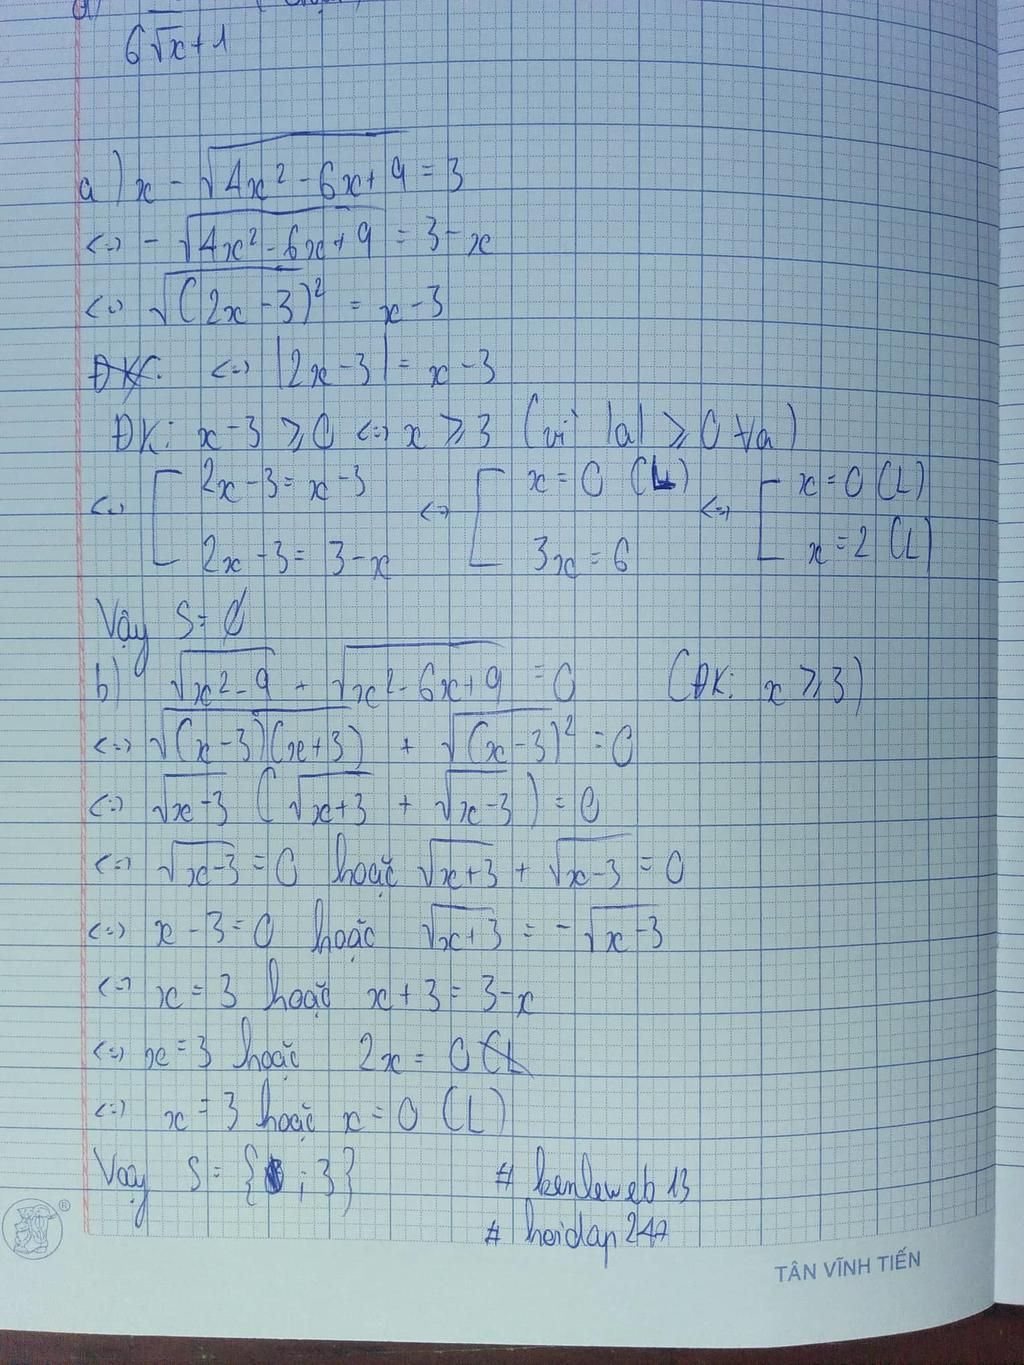 6√x+1
a) x - √4x² - 6x + 9 = 3
<=> - √4x² - 6x + 9 = 3 - x
<=> √(2x - 3)² = x - 3
ĐK: <=> |2x - 3| = x - 3
ĐK: x - 3 ≥ 0 <=> x ≥ 3 (vì |a| ≥ 0 ∀a)
<=> [ 2x - 3 = x - 3 <=> [ x = 0 (L) <=> [ x = 0 (L)
2x - 3 = 3 - x 3x = 6 x = 2 (L)
Vậy S = ∅
b) √x² - 9 + √x² - 6x + 9 = 0 (ĐK: x ≥ 3)
<=> √(x - 3)(x + 3) + √(x - 3)² = 0
<=> √x - 3 (√x + 3 + √x - 3) = 0
<=> √x - 3 = 0 hoặc √x + 3 + √x - 3 = 0
<=> x - 3 = 0 hoặc √x + 3 = - √x - 3
<=> x = 3 hoặc x + 3 = 3 - x
<=> x = 3 hoặc 2x = 0 (L
<=> x = 3 hoặc x = 0 (L)
Vậy S = { ; 3}
# kenleweb 13
# hoidap 247
TÂN VĨNH TIẾN